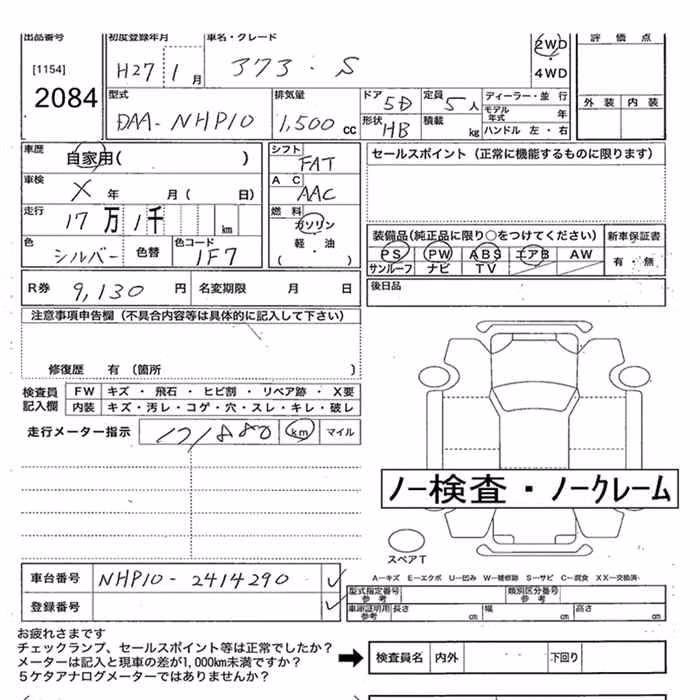 出品番号 初度登録年月 車名・グレード 2WD 評価点
[1154] H27 1月 373・S ・ 4WD
2084 外装 内装
型式 排気量 ドア 5D 定員 5人 ディーラー・並行
DAA-NHP10 1,500cc 形状 HB 積載 kg モデル年式 年
ハンドル 左・右
車歴 自家用( ) シフト FAT セールスポイント(正常に機能するものに限ります)
車検 X 年 月( 日) AC AAC
走行 17万1千 km 燃料 ガソリン 装備品(純正品に限り○をつけてください) 新車保証書
色 シルバー 色替 色コード 1F7 軽・油 PS PW ABS エアB AW 有・無
( ) サンルーフ ナビ TV
R券 9,130円 名変期限 月 日 後日品
注意事項申告欄(不具合内容等は具体的に記入して下さい)
修復歴 有(箇所 )
検査員記入欄 FW キズ・飛石・ヒビ割・リペア跡・X要
内装 キズ・汚レ・コゲ・穴・スレ・キレ・破レ
走行メーター指示 171880 km マイル
ノー検査・ノークレーム
スペアT
車台番号 NHP10-2414290 A-キズ E-エクボ U-凹み W-補修跡 S-サビ C-腐食 XX-交換済
登録番号 型式指定番号参考 類別区分番号参考
車庫証明用参考 長さ cm 幅 cm 高さ cm
お疲れさまです
チェックランプ、セールスポイント等は正常でしたか?
メーターは記入と現車の差が1,000km未満ですか? 検査員名 内外 下回り
5ケタアナログメーターではありませんか?